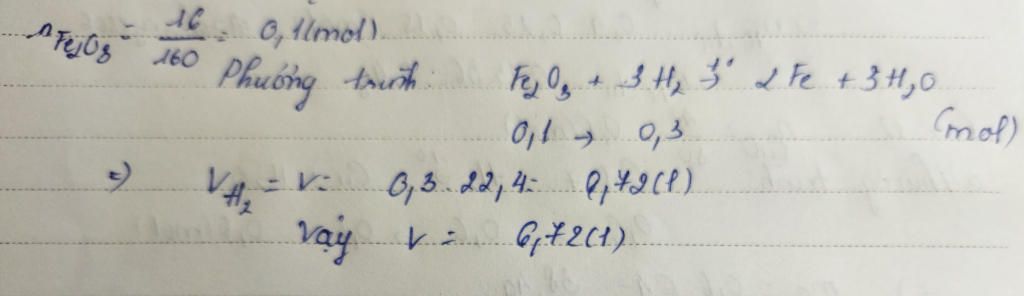 nFe2O3 = 16/160 = 0,1(mol)
Phương trình: Fe2O3 + 3H2 t° 2Fe + 3H2O
0,1 → 0,3 (mol)
=) VH2 = V = 0,3 . 22,4 = 6,72(l)
Vậy V = 6,72(l)